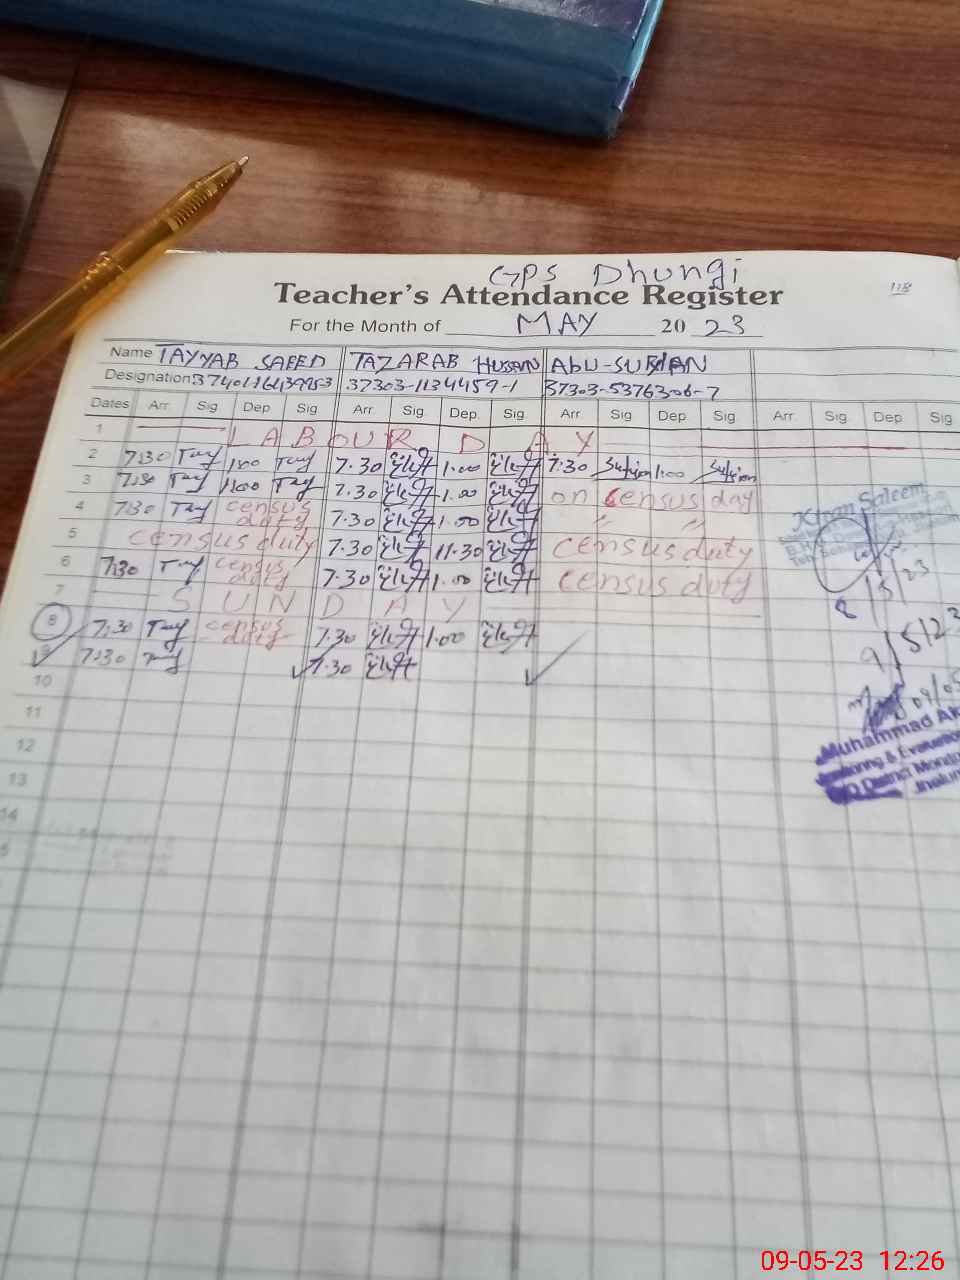 GPS Dhungi
118
Teacher's Attendance Register
For the Month of MAY 20 23
Name TAYYAB SAEED TAZARAB HUSSAIN ABU-SUFIAN
Designation 37303-1134459-1 37303-5376306-7
Dates Arr. Sig Dep Sig Arr. Sig. Dep. Sig Arr. Sig Dep Sig Arr. Sig Dep Sig
1 LABOUR DAY
2 7:30 Tay 1:00 Tay 7.30 1.00 7:30 Sufian 1:00 Sufian
3 7:30 Tay 1:00 Tay 7.30 1.00 on census day
4 7:30 Tay census duty 7.30 1.00 〃 〃
5 census duty 7.30 11.30 census duty
6 7:30 Tay census duty 7.30 1.00 census duty
7 SUNDAY
8 7:30 Tay census duty 7.30 1.00
9 7:30 Tay 7.30
10
11
12
13
14
Saleem
8/5/23
9/5/23
09/05
Muhammad
Monitoring & Evaluation
District
09-05-23 12:26